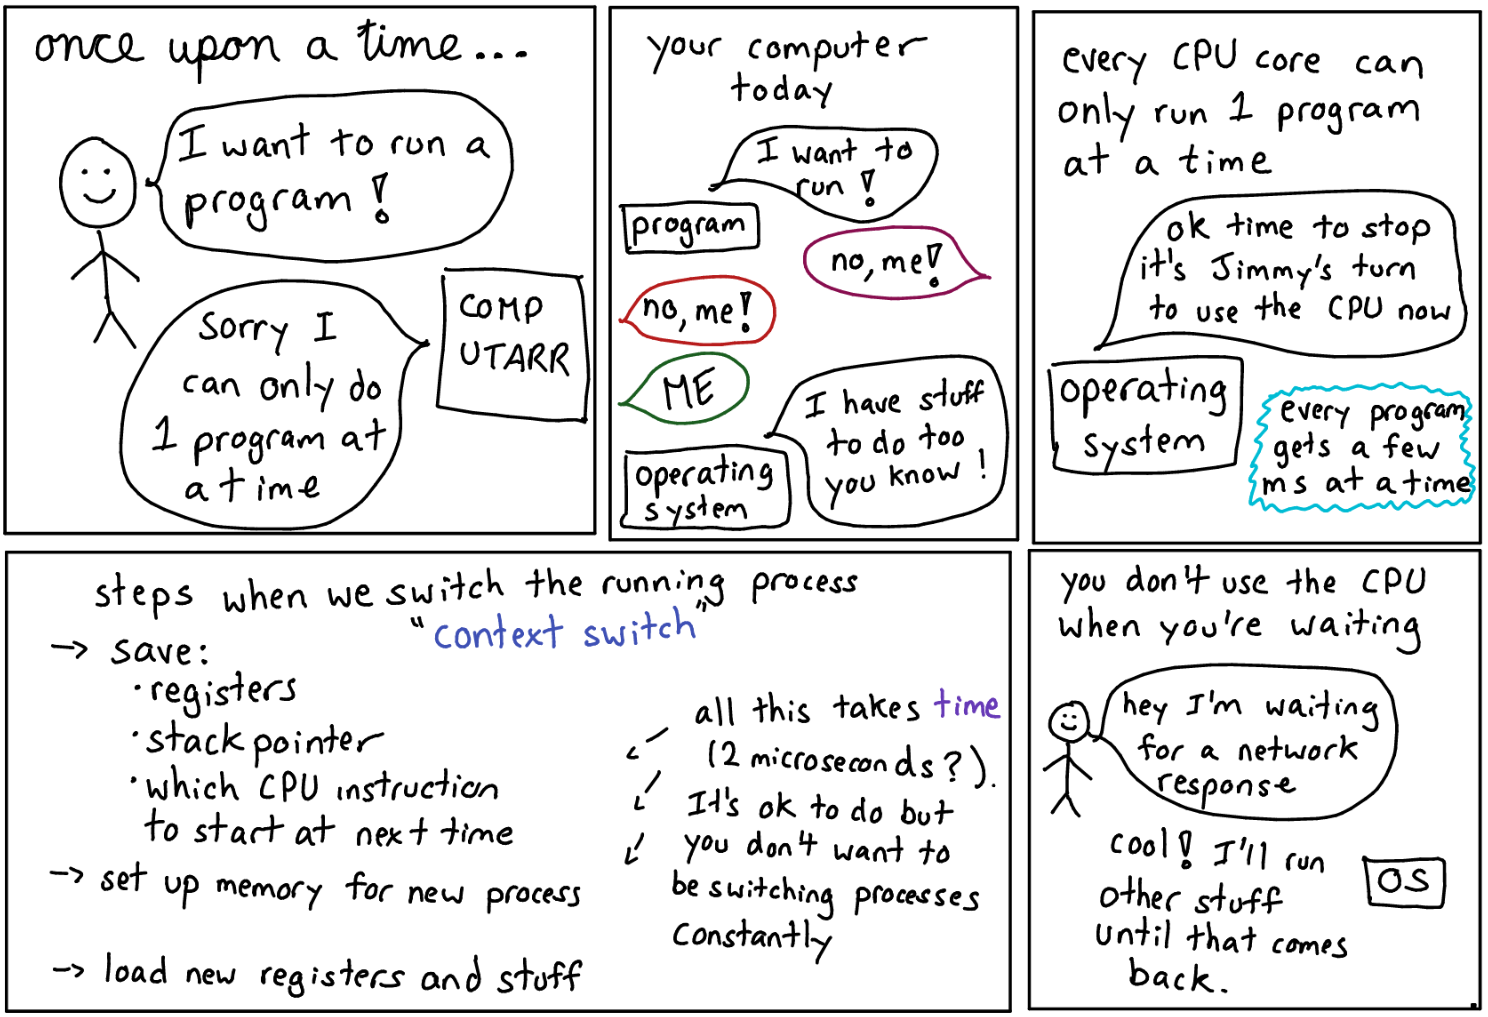 once upon a time...
I want to run a
program!
COMP
UTARR
Sorry I
can only do
1 program at
a time
your computer
today
I want to
run!
program
no, me!
no, me!
ME
I have stuff
to do too
you know!
operating
system
every CPU core can
only run 1 program
at a time
ok time to stop
it's Jimmy's turn
to use the CPU now
operating
system
every program
gets a few
ms at a time
steps when we switch the running process
"context switch"
→ save:
· registers
· stack pointer
· which CPU instruction
to start at next time
→ set up memory for new process
→ load new registers and stuff
all this takes time
(2 microseconds?).
It's ok to do but
you don't want to
be switching processes
constantly
you don't use the CPU
when you're waiting
hey I'm waiting
for a network
response
cool! I'll run
other stuff
until that comes
back.
OS